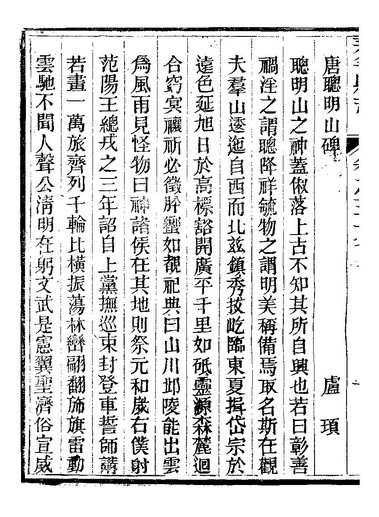 唐聰明山碑
盧頊
聰明山之神蓋俶落上古不知其所自興也若曰彰善
禍淫之謂聰降祥毓物之謂明美稱備焉取名斯在觀
夫羣山逶迤自西而北玆鎮秀拔屹臨東夏揖岱宗於
遠色延旭日於高標豁開廣平千里如砥靈源森麓迴
合窈寞禳祈必徵肸蠁如覩祀典曰山川邱陵能出雲
爲風雨見怪物曰神諸侯在其地則祭元和嵗右僕射
范陽王總戎之三年詔自上黨撫巡東封登車誓師講
若畫一萬旅齊列千輪比橫振蕩林巒翩翻斾旗雷動
雲馳不聞人聲公淸明在躬文武是憲翼聖濟俗宣威